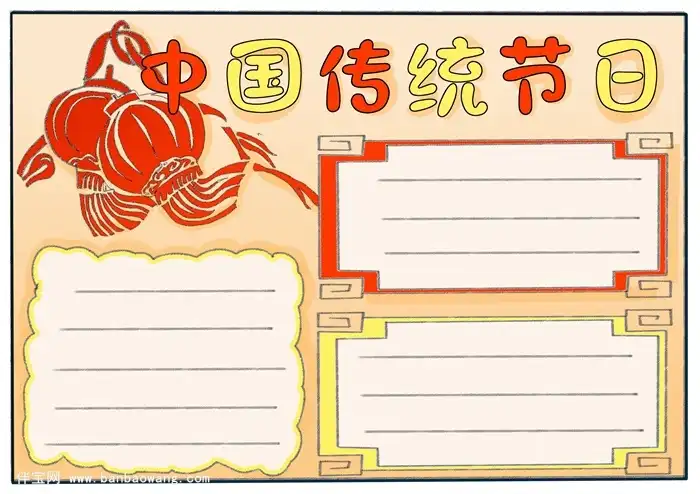 中国传统节日
伴宝网 www.banbaowang.com